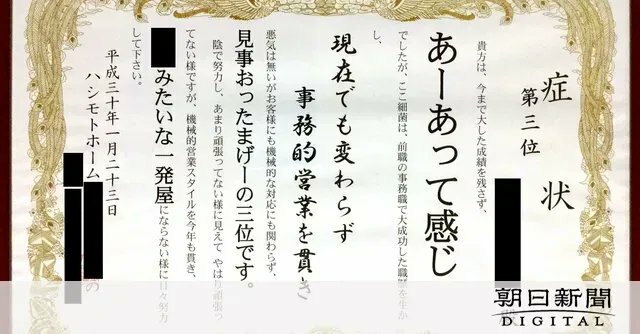 症状
第三位
貴方は、今まで大した成績を残さず、
あーあって感じ
でしたが、ここ細菌は、前職の事務職で大成功した職歴を生か
し、
現在でも変わらず
事務的営業を貫き
悪気は無いがお客様にも機械的な対応にも関わらず、
見事おったまげーの三位です。
陰で努力し、あまり頑張ってない様に見えて やはり頑張っ
てない様ですが、機械的営業スタイルを今年も貫き、
みたいな一発屋にならない様に日々努力
して下さい。
平成三十年一月二十三日
ハシモトホーム
の
朝日新聞
DIGITAL